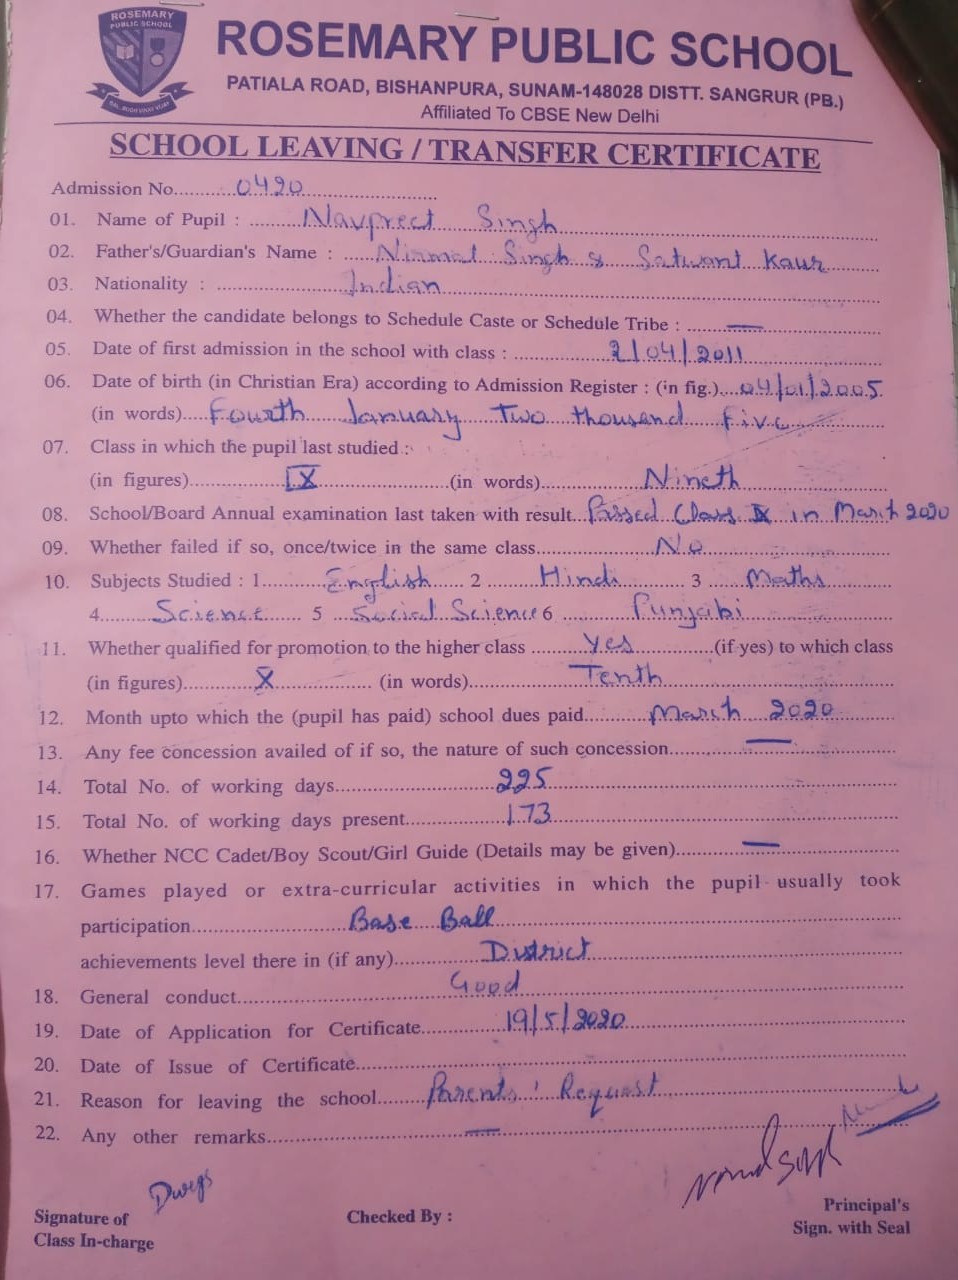 ROSEMARY
PUBLIC SCHOOL
ROSEMARY PUBLIC SCHOOL
PATIALA ROAD, BISHANPURA, SUNAM-148028 DISTT. SANGRUR (PB.)
Affiliated To CBSE New Delhi
SCHOOL LEAVING / TRANSFER CERTIFICATE
Admission No. 0420
01. Name of Pupil : Navpreet Singh
02. Father's/Guardian's Name : Nirmal Singh & Satwant Kaur
03. Nationality : Indian
04. Whether the candidate belongs to Schedule Caste or Schedule Tribe : —
05. Date of first admission in the school with class : 2/04/2011
06. Date of birth (in Christian Era) according to Admission Register : (in fig.) 04/01/2005
(in words) Fourth January Two thousand Five
07. Class in which the pupil last studied :
(in figures) IX (in words) Nineth
08. School/Board Annual examination last taken with result Passed Class IX in March 2020
09. Whether failed if so, once/twice in the same class No
10. Subjects Studied : 1 English 2 Hindi 3 Maths
4 Science 5 Social Science 6 Punjabi
11. Whether qualified for promotion to the higher class Yes (if yes) to which class
(in figures) X (in words) Tenth
12. Month upto which the (pupil has paid) school dues paid March 2020
13. Any fee concession availed of if so, the nature of such concession —
14. Total No. of working days 225
15. Total No. of working days present 173
16. Whether NCC Cadet/Boy Scout/Girl Guide (Details may be given) —
17. Games played or extra-curricular activities in which the pupil usually took
participation Base Ball
achievements level there in (if any) District
18. General conduct Good
19. Date of Application for Certificate 19/5/2020
20. Date of Issue of Certificate
21. Reason for leaving the school Parents' Request
22. Any other remarks —
Signature of
Class In-charge
Checked By :
Principal's
Sign. with Seal